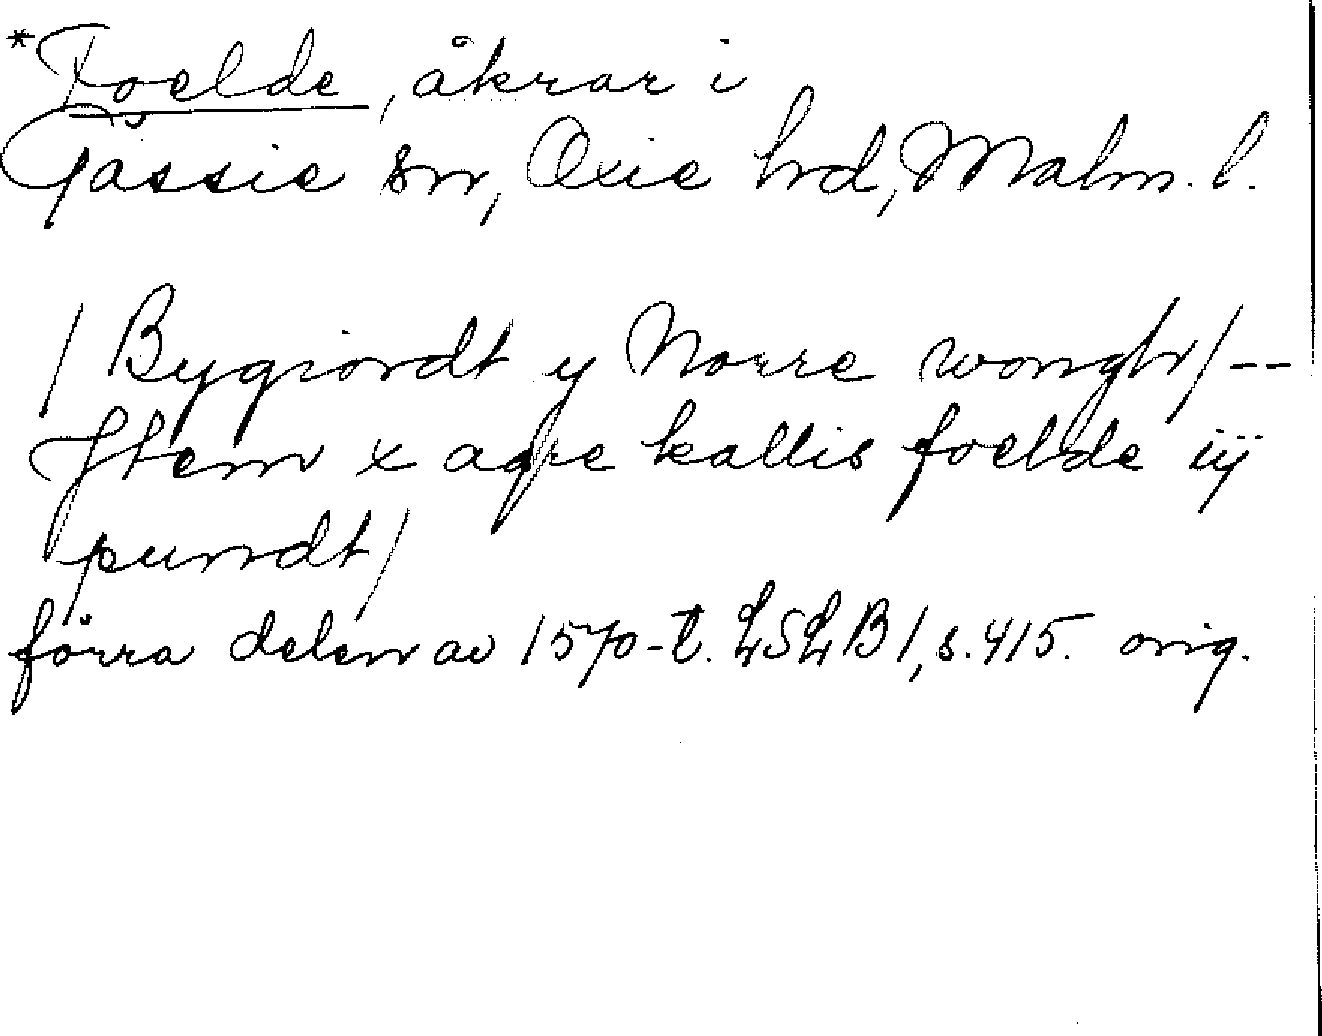 *Foelde, åkrar i
Gässie sn, Oxie hrd, Malm. l.
/ Bygiordt y Norre wongh / --
Jtem x agre kallis foelde iij
pundt /
förra delen av 1570-t. LSLB 1, s. 415. orig.